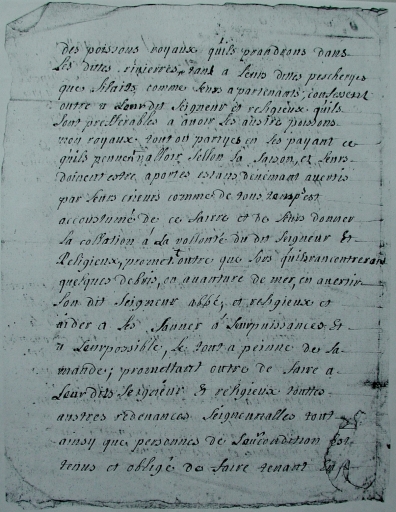 des poissons royaux quils prandrons dans
les dittes rivierres, tant a leurs dittes pescheryes
que filaits, comme leurs apartenants; confessent
outre a leur dit seigneur et religieux quils
sont prefferables a avoir les austre poissons
non royaux tout ou partyes en les payant ce
quils peuvent valloir, sellon la saison, et leurs
doivent estre aportes estans dënimant avertis
par leurs crieurs comme de tous temps est
accoustumé de ce faire et de leurs donner
la collation a la vollonté du dit seigneur Et
Religieux, promet outre que lors quils rancontreront
quelques debris, en avanture de mer, en avertir
son dit seigneur abbé, et religieux et
aider a les sauver a leur puissances Et
a leur possible, le tout a peinne de la
mande; promettant outre de faire a
leur dits seigneur Et religieux touttes
austres redenances seigneurialles tout
ainsy que personnes de condition est
tenus et obligé de faire tenant